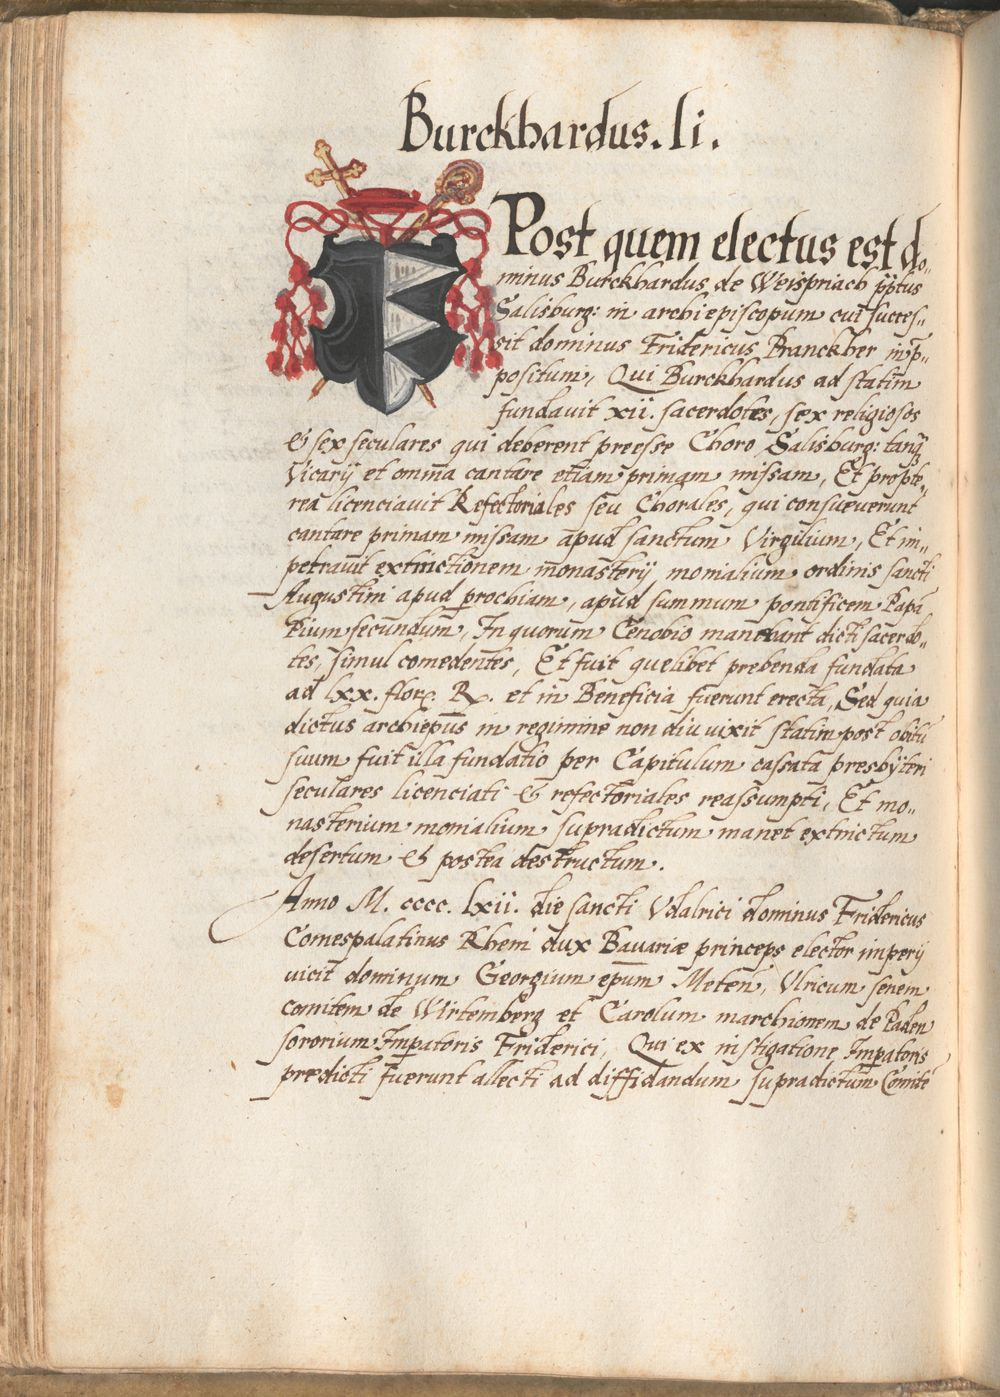 Burckhardus. li.
Post quem electus est do„
minus Burckhardus de Weispriach p̄p̄tus
Salisburg: in archiepiscopum cui succes„
sit dominus Fridericus Pranckher in p̄„
positum, Qui Burckhardus ad statim
fundavit xii. sacerdotes, sex religiosos
& sex seculares qui deberent preesse Choro Salisburg: tanq̄
Vicarij et omnia cantare etiam primam missam, Et propte„
rea licenciavit Refectoriales seu Chorales, qui consueverunt
cantare primam missam apud sanctum Virgilium, Et im„
petravit extinctionem monasterij monialium ordinis sancti
Augustini apud parochiam, apud summum pontificem Papā
Pium secundum, In quorum Cenobio manebant dicti sacerdo„
tes, simul comedentes, Et fuit quelibet prebenda fundata
ad lxx. flor. R. et in Beneficia fuerunt erecta, Sed quia
dictus archiepūs in regimine non diu vixit statim post obitū
suum fuit illa fundatio per Capitulum cassata presbyteri
seculares licenciati & refectoriales reassumpti, Et mo„
nasterium monialium supradictum manet extinctum
desertum & postea destructum.
Anno M. cccc. lxii. die sancti Vdalrici dominus Fridericus
Comespalatinus Rheni dux Bavariæ princeps elector imperij
vicit dominum Georgium ep̄um Meten, Vlricum senem
comitem de Wirtemberg et Carolum marchionem de Paden
sororium Imperatoris Friderici, Qui ex instigatione Imperatoris
predicti fuerunt allecti ad diffidandum supradictum Comitē